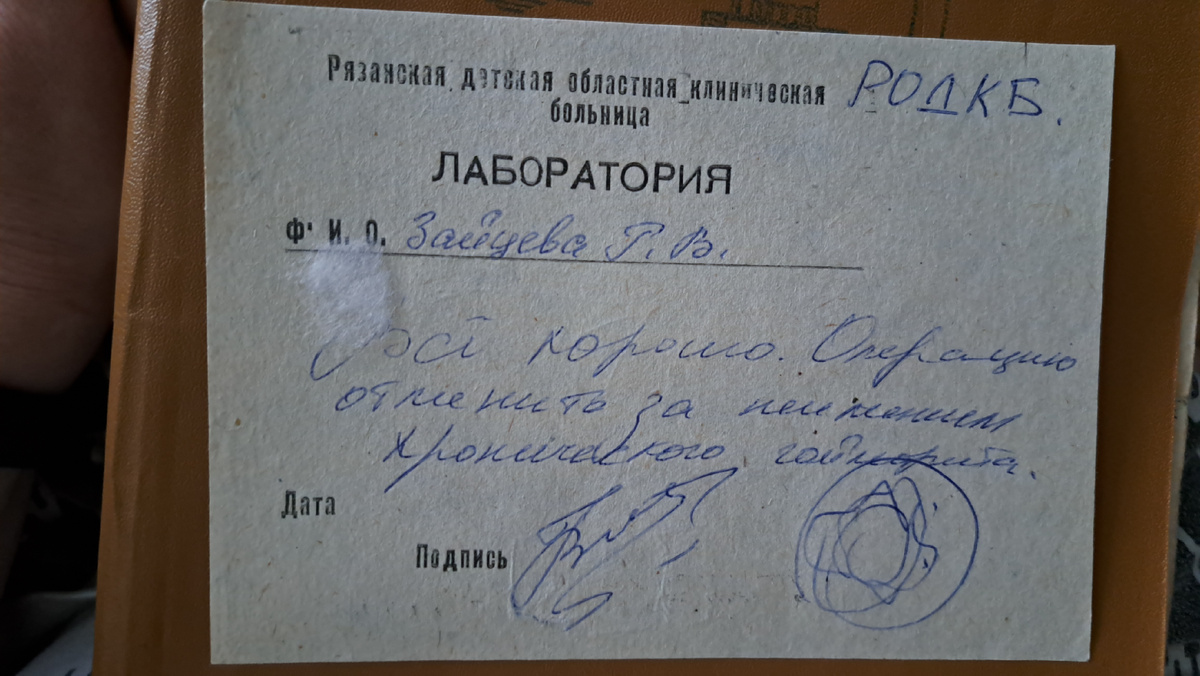 Рязанская детская областная клиническая РОДКБ.
больница
ЛАБОРАТОРИЯ
Ф. И. О. Зайцева Г. В.
хорошо. Операцию
отменить за неимением
хронического гайморита.
Дата
Подпись